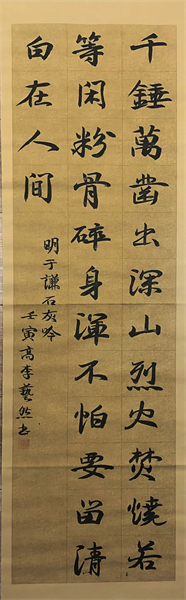 千錘萬凿出深山烈火焚燒若
等闲粉骨碎身渾不怕要留清
白在人间
明于謙石灰吟
壬寅高李藝然书